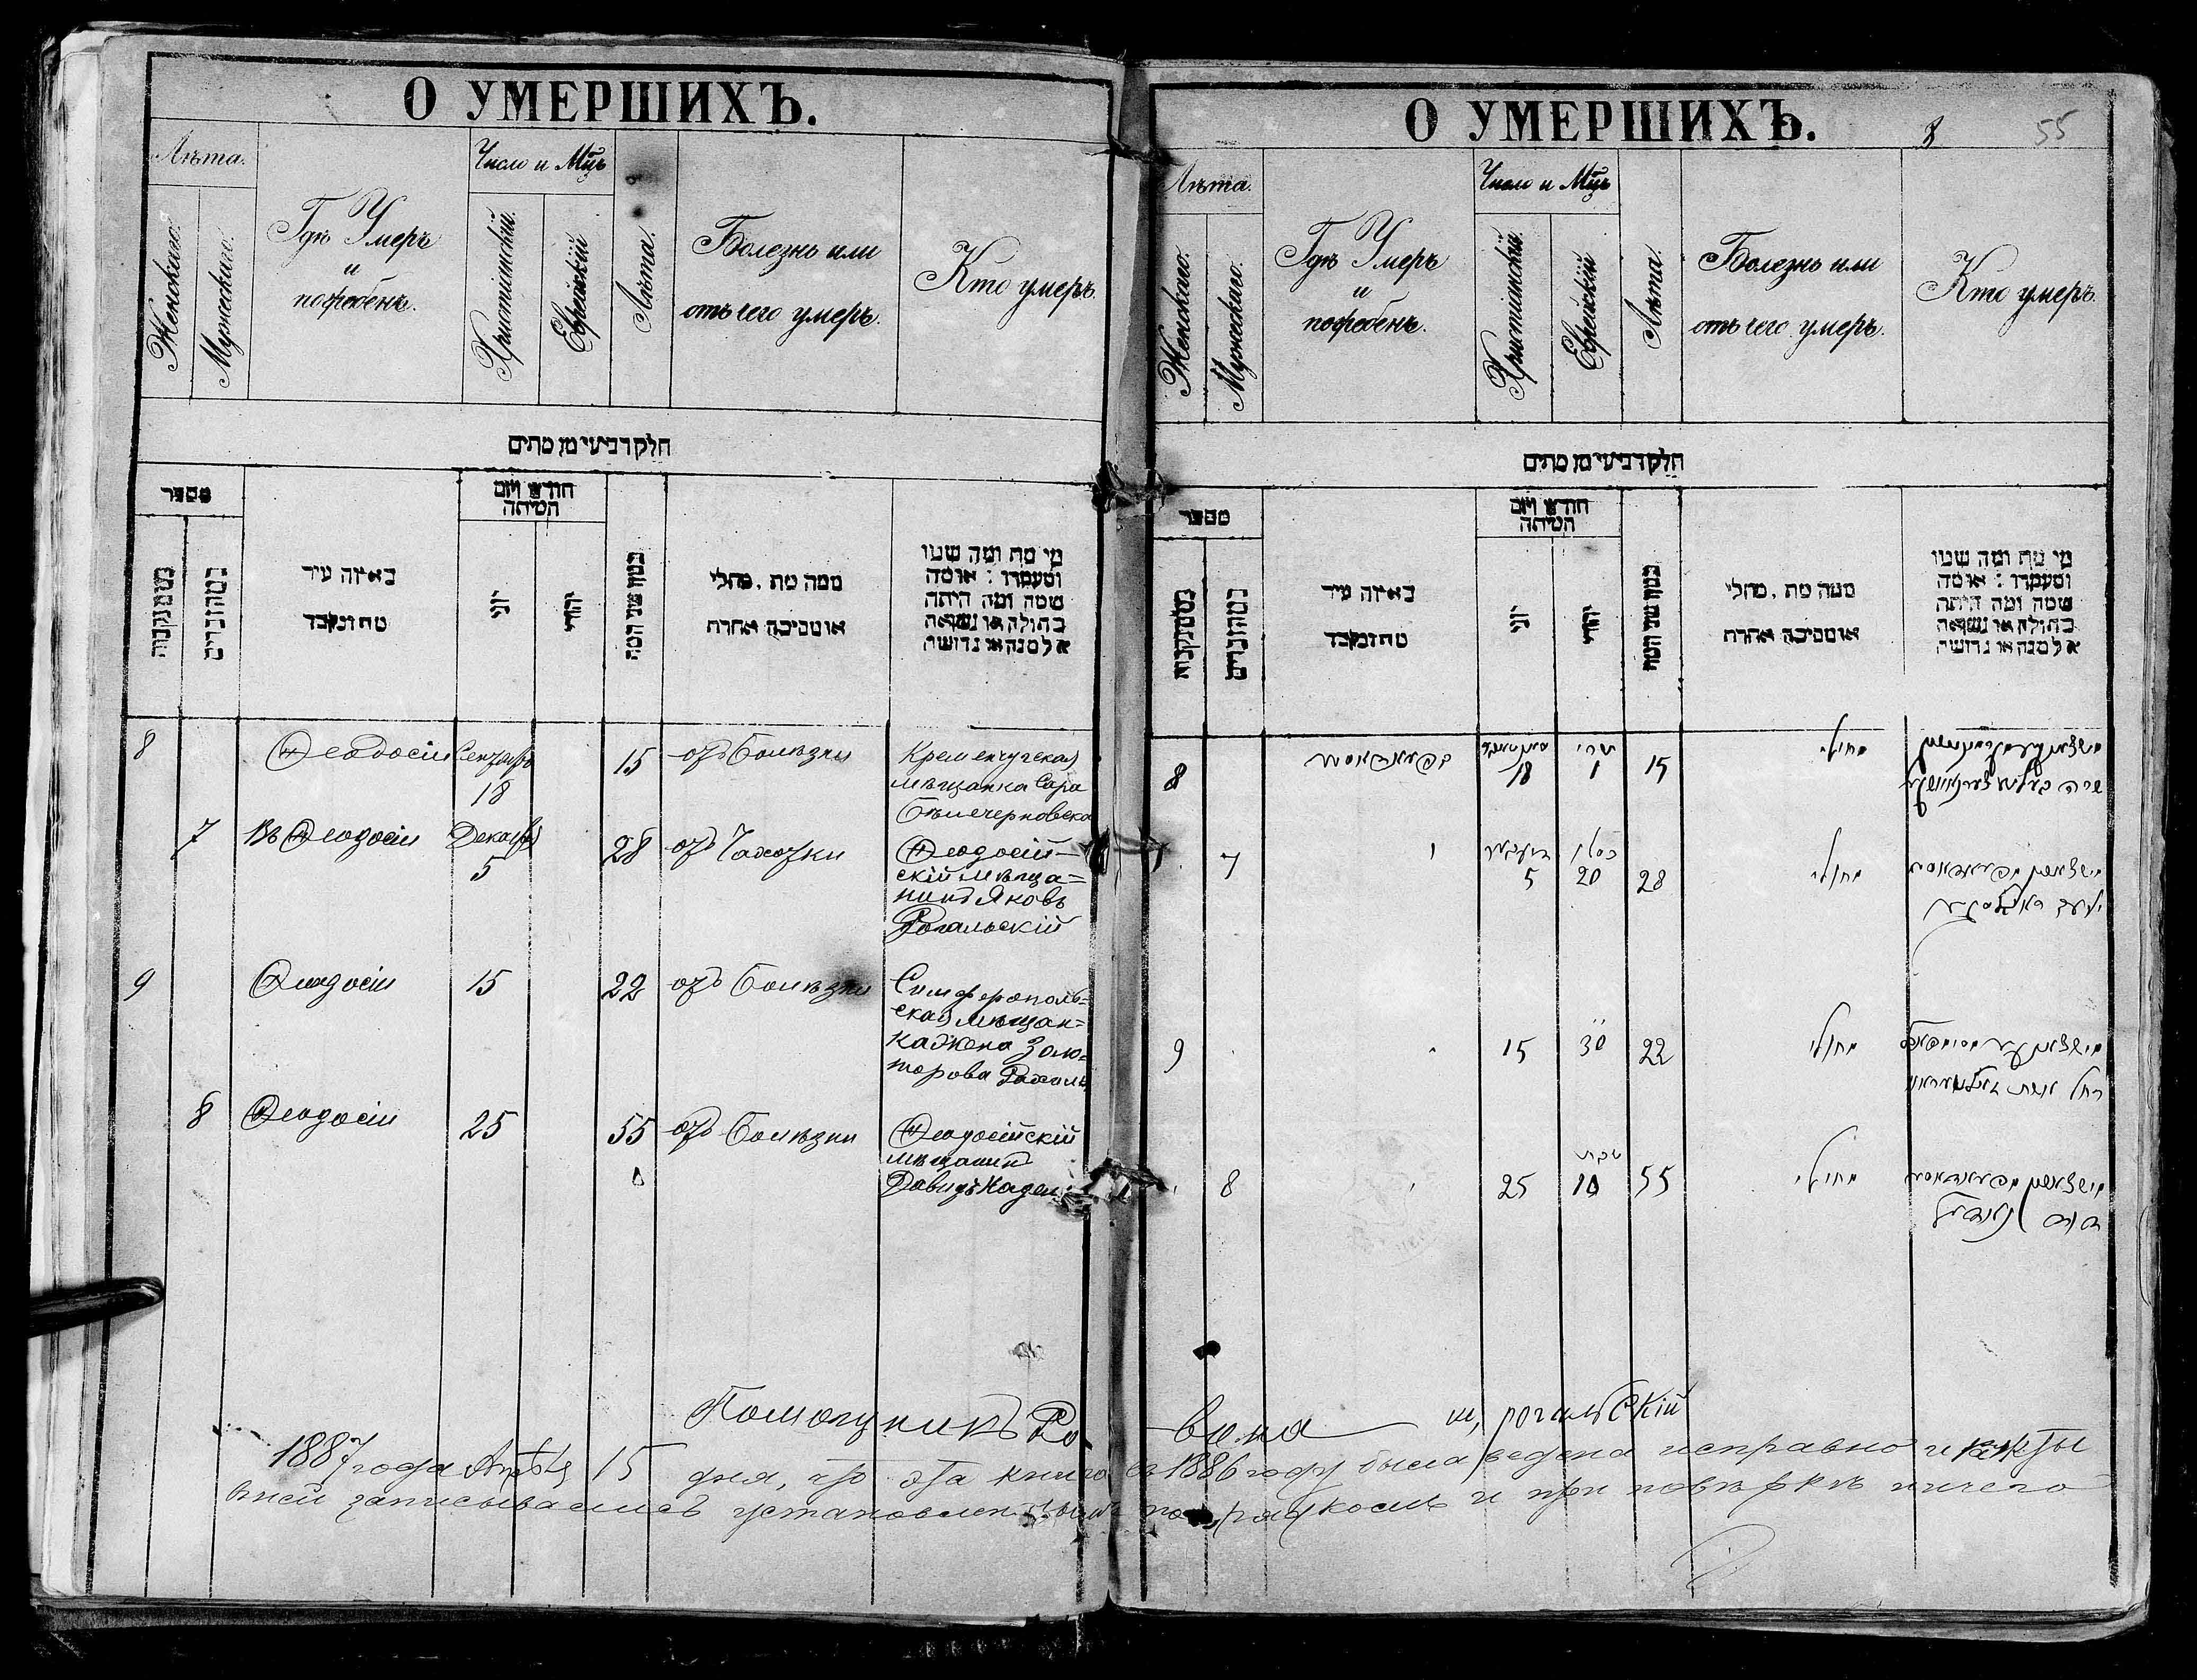 О УМЕРШИХЪ.
Лѣта.
Женскаго.
Мужескаго.
Гдѣ Умеръ
и
погребенъ.
Число и Мѣц.
Христіанскій.
Еврейскій
Лѣта.
Болезнь или
отъ чего умеръ.
Кто умеръ.
חלק רביעי מן מתים
מספר
ממין נקבות
ממין זכרים
באיזה עיר
מת ונקבר
חודש ויום
המיתה
יוני
יהודי
כמה שני המת
ממה מת, מחלי
או מסיבה אחרת
מי מת ומה שמו
ומעמדו: או מה
שמה ומה היתה
בתולה או נשואה
אלמנה או גרושה
8 Ѳеодосіи Сентябрь 18 15 отъ Болѣзни Кременчугская
мѣщанка Сара
Бѣлечерковска
7 Въ Ѳеодосіи Декабрь 5 28 отъ Чахотки Ѳеодосій-
скій мѣща=
нинъ Яковъ
Рогальскій
9 Ѳеодосіи 15 22 отъ Болѣзни Симферополь=
ская мѣщан=
ка жена Золо=
торова Рахиль
8 Ѳеодосіи 25 55 отъ Болѣзни Ѳеодосійскій
мѣщанинъ
Давидъ
О УМЕРШИХЪ.
8 55
Лѣта.
Женскаго.
Мужескаго.
Гдѣ Умеръ
и
погребенъ.
Число и Мѣц.
Христіанскій.
Еврейскій
Лѣта.
Болезнь или
отъ чего умеръ.
Кто умеръ.
חלק רביעי מן מתים
מספר
ממין נקבות
ממין זכרים
באיזה עיר
מת ונקבר
חודש ויום
המיתה
יוני
יהודי
כמה שני המת
ממה מת, מחלי
או מסיבה אחרת
מי מת ומה שמו
ומעמדו: או מה
שמה ומה היתה
בתולה או נשואה
אלמנה או גרושה
8 18 תשרי 1 15 מחולי
שרה
7 5 כסלו 20 28 מחולי
יעקב
9 15 30 22 מחולי
רחל אשת
8 25 טבת 10 55 מחולי
דוד
Помощникъ Раввина Ш, рогальСкій
1887 года Апрѣля 15 дня, что эта книга въ 1886 году была ведена исправно и акты
въ ней записывались установленнымъ порядкомъ и при повѣркѣ ничего